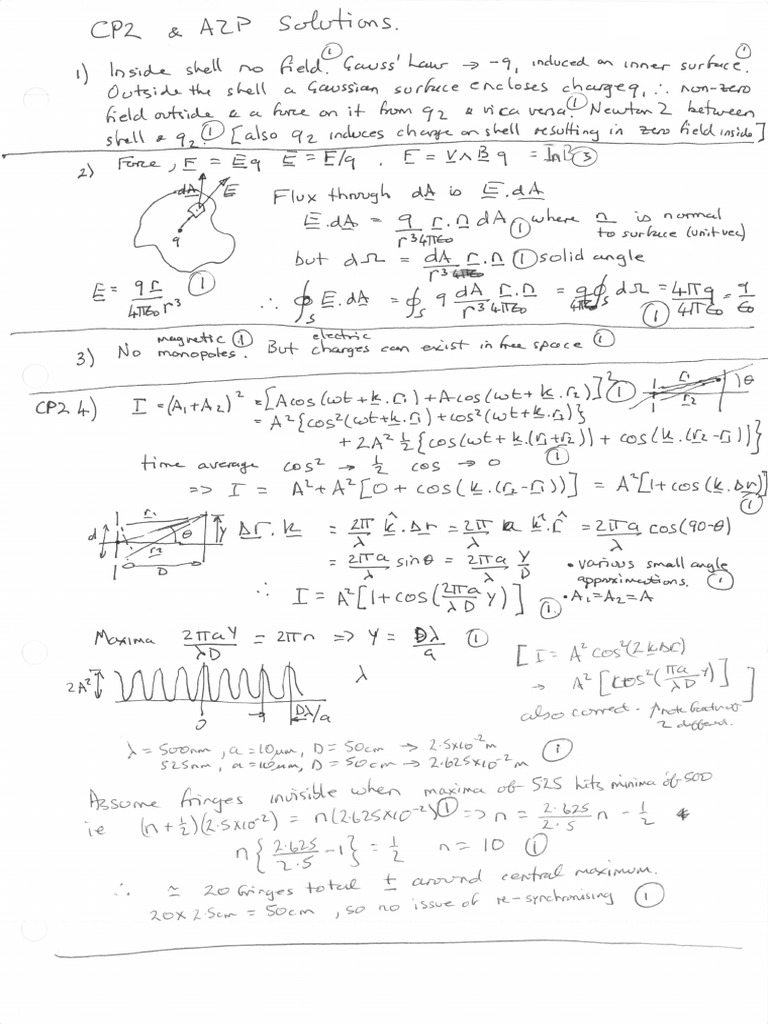 CP2 & A2P Solutions.
1) Inside shell no field. ① Gauss' Law → -q, induced on inner surface. ①
Outside the shell a Gaussian surface encloses charge q, ∴ non-zero
field outside & a force on it from q2 & vica versa. ① Newton 2 between
shell & q2. ① [also q2 induces charge on shell resulting in zero field inside]
2) Force, F = Eq E = F/q . F = V∧B q = I∧B ③
dA E
q
Flux through dA is E.dA
E.dA = q/(r³4πε0) r.n dA ① where n is normal
to surface (unit vec)
but dΩ = dA/r³ r.n ① solid angle
E = q r/(4πε0 r³) ①
∴ ∮s E.dA = ∮s q dA/r³ r.n/4πε0 = q/4πε0 ∮s dΩ = 4πq/4πε0 = q/ε0 ①
3) No magnetic ① monopoles. But electric charges can exist in free space ①
CP2 4) I = (A1+A2)² = [A cos(ωt + k.r1) + A cos(ωt + k.r2)]² ①
r1 r2 θ
= A²{cos²(ωt+k.r1) + cos²(ωt+k.r2)}
+ 2A² ½{cos(ωt + k.(r1+r2)) + cos(k.(r2-r1))} ①
time average cos² → ½ cos → 0
=> I = A² + A²[0 + cos(k.(r2-r1))] = A²[1+cos(k.Δr)] ①
d r1 r2 θ Y D
Δr.k = 2π/λ k̂.Δr = 2π/λ a k̂.r̂ = 2πa/λ cos(90-θ)
= 2πa/λ sinθ = 2πa/λ Y/D
• various small angle
approximations. ①
• A1=A2=A
∴ I = A²[1+cos(2πa/λD Y)] ①
Maxima 2πaY/λD = 2πn => Y = Dλ/a ①
[I = A²cos²(2kΔC)
→ A²[cos²(πa/λD Y)]]
also correct.
2A² 0 Dλ/a
λ
λ = 500nm, a = 10μm, D = 50cm → 2.5x10⁻²m ①
525nm, a = 10μm, D = 50cm → 2.625x10⁻²m
Assume fringes invisible when maxima of 525 hits minima of 500
ie (n+½)(2.5x10⁻²) = n(2.625x10⁻²) ① => n = 2.625/2.5 n - ½
n{2.625/2.5 - 1} = ½ n = 10 ①
∴ ≃ 20 fringes total ± around central maximum.
20 x 2.5cm = 50cm, so no issue of re-synchronising ①